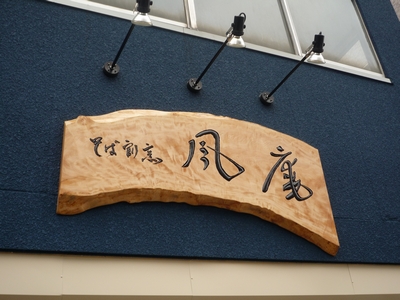 そば割烹 風庵